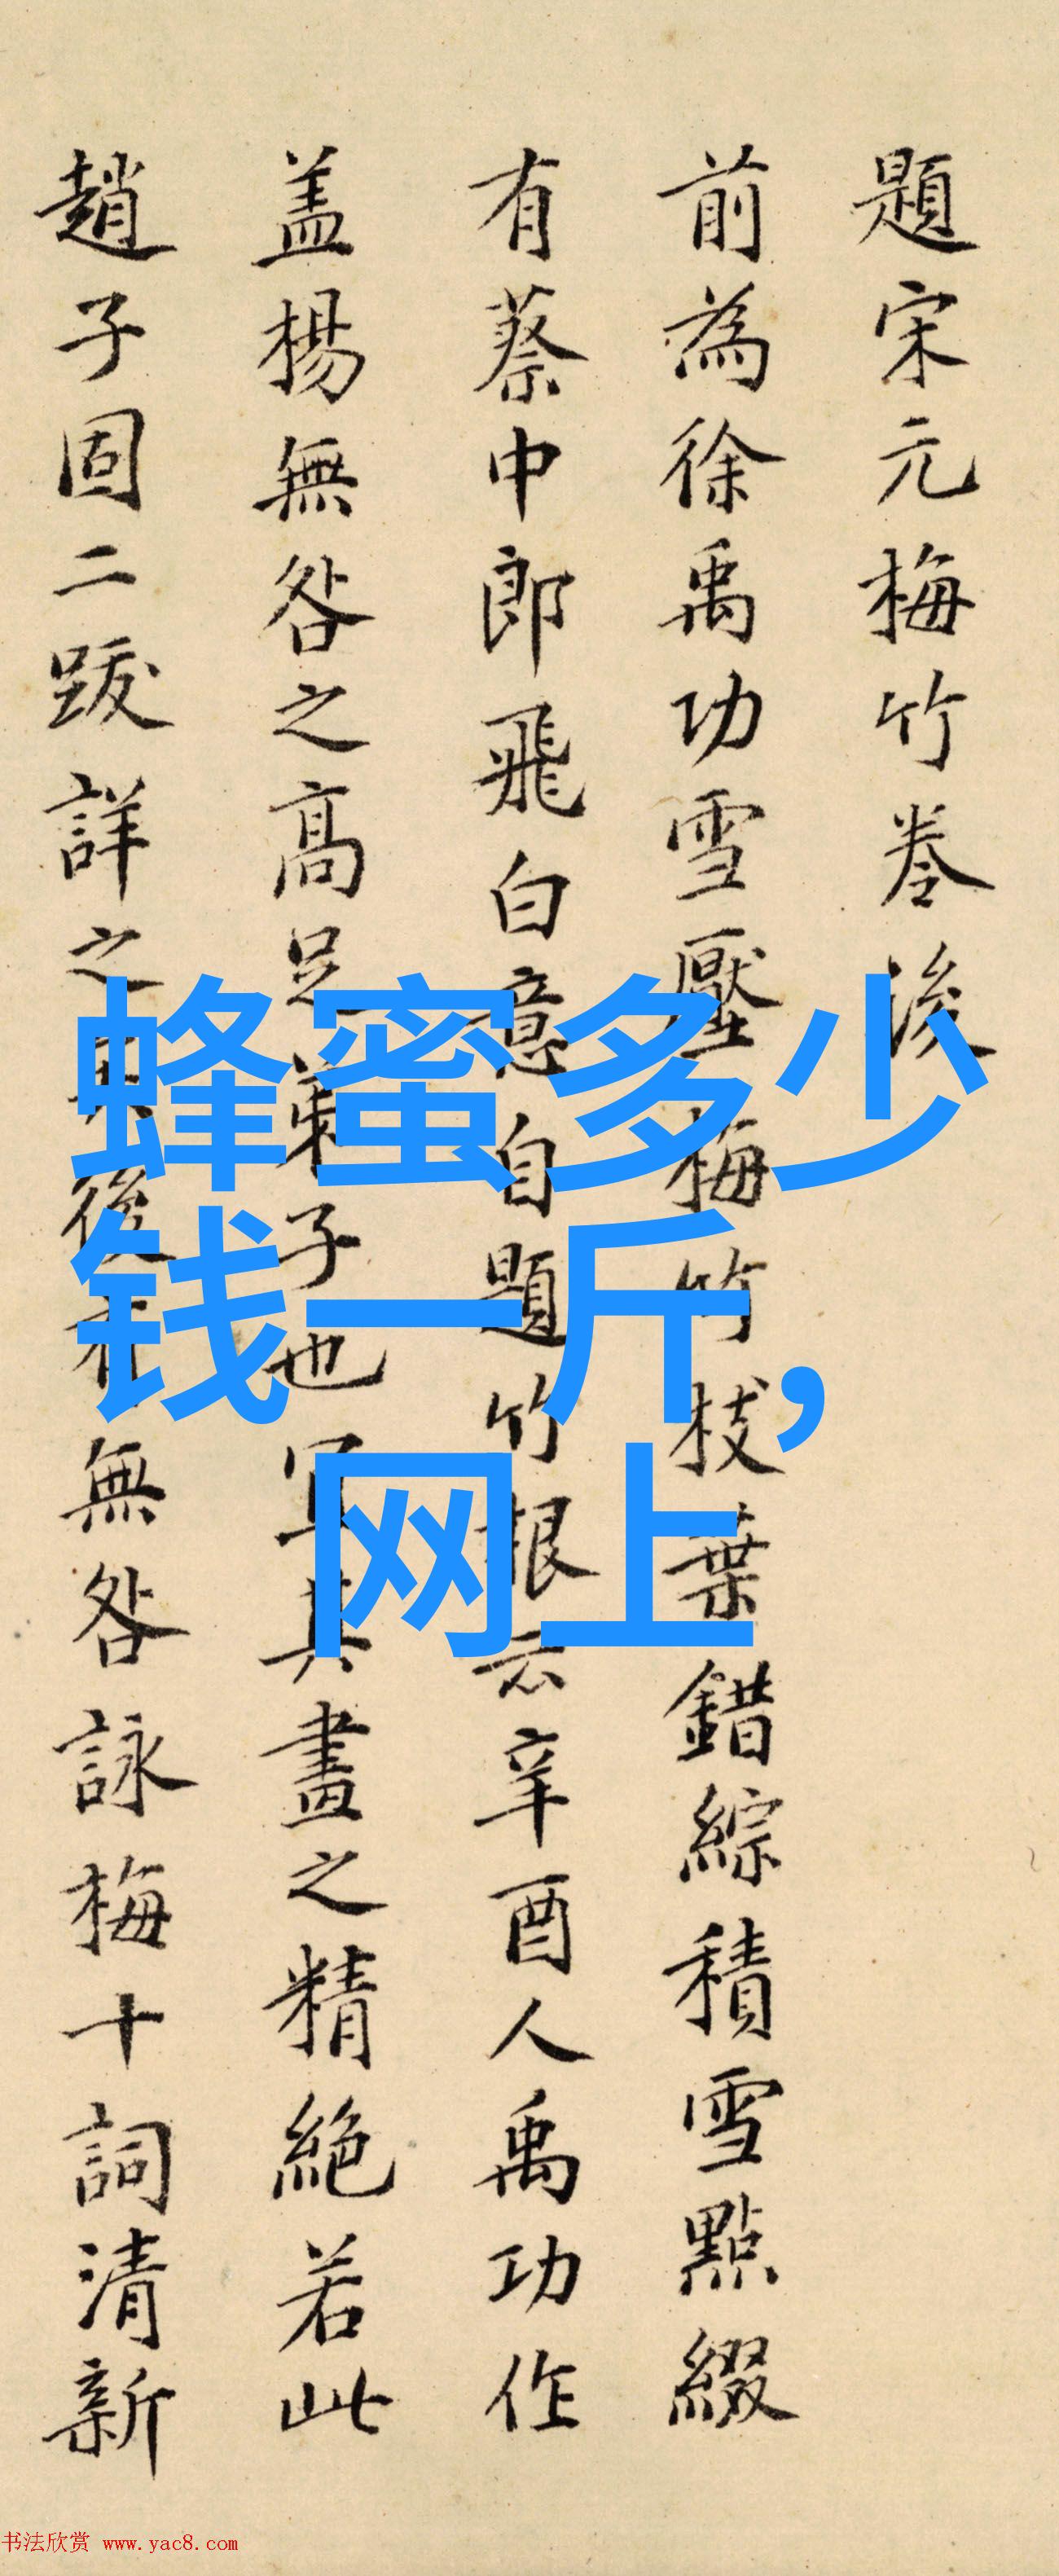 題宋元梅竹卷後
前為徐禹功雪壓梅竹枝葉錯綜積雪點綴
有蔡中郎飛白意自題竹根云辛酉人禹功作
盖楊無咎之高足弟子也其畫之精絕若此
趙子固二跋詳之後無咎詠梅十詞清新
蜂蜜多少
钱一斤，
网上
书法欣赏 www.yac8.com